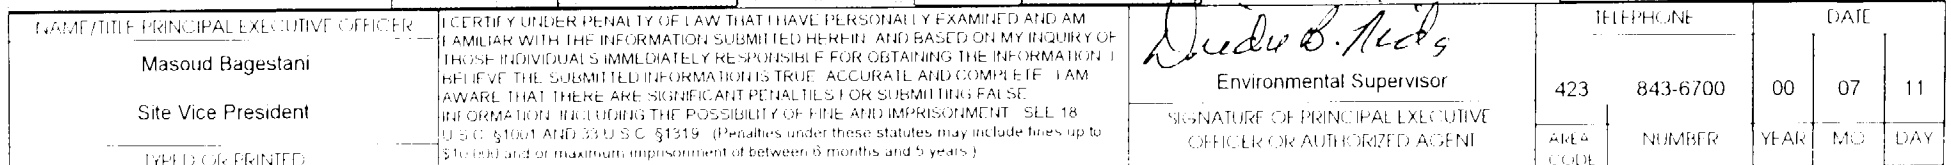 NAME/TITLE PRINCIPAL EXECUTIVE OFFICER
Masoud Bagestani
Site Vice President
TYPED OR PRINTED
I CERTIFY UNDER PENALTY OF LAW THAT I HAVE PERSONALLY EXAMINED AND AM
FAMILIAR WITH THE INFORMATION SUBMITTED HEREIN AND BASED ON MY INQUIRY OF
THOSE INDIVIDUALS IMMEDIATELY RESPONSIBLE FOR OBTAINING THE INFORMATION I
BELIEVE THE SUBMITTED INFORMATION IS TRUE ACCURATE AND COMPLETE I AM
AWARE THAT THERE ARE SIGNIFICANT PENALTIES FOR SUBMITTING FALSE
INFORMATION INCLUDING THE POSSIBILITY OF FINE AND IMPRISONMENT SEE 18
U S C §1001 AND 33 U S C §1319 (Penalties under these statutes may include fines up to
$10,000 and or maximum imprisonment of between 6 months and 5 years )
B.
Environmental Supervisor
SIGNATURE OF PRINCIPAL EXECUTIVE
OFFICER OR AUTHORIZED AGENT
TELEPHONE
423 843-6700
AREA CODE NUMBER
DATE
00 07 11
YEAR MO DAY